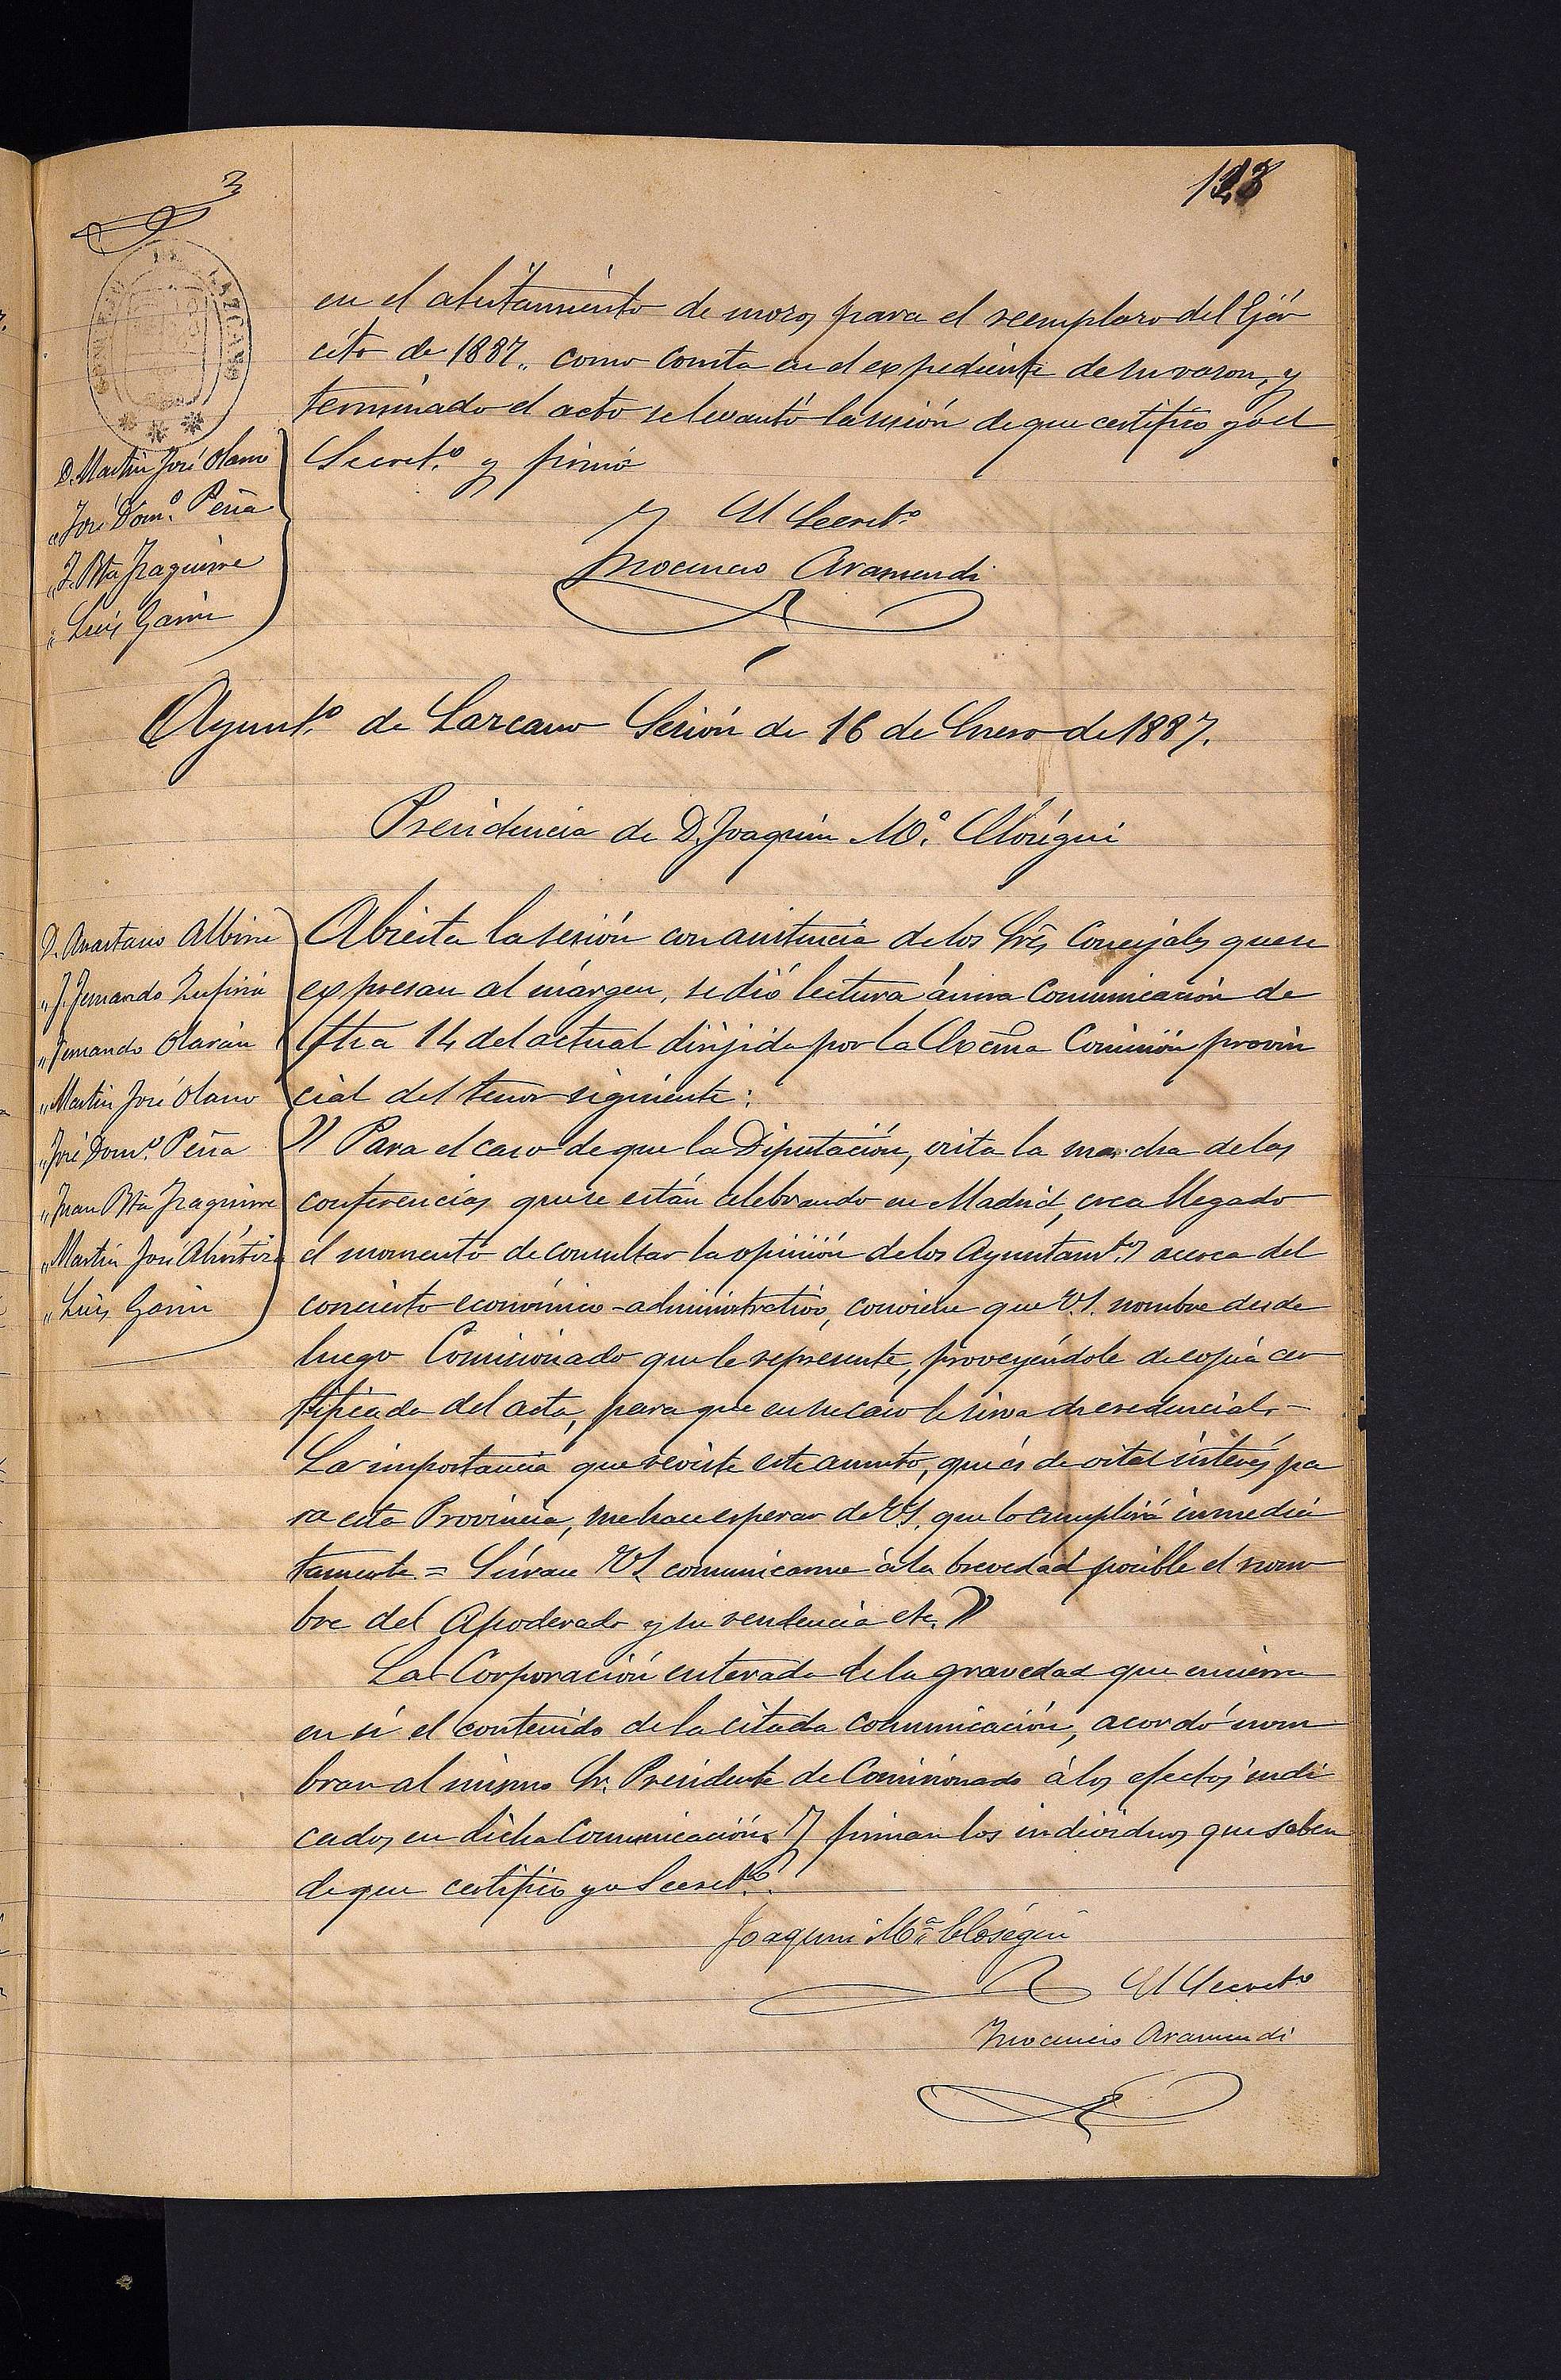 3
123
en el alistamiento de mozos para el reemplazo del Ejér
cito de 1887,, como consta en el expediente de su razon, y
terminado el acto se levantó la sesión de que certifico yo el
Secret.º y firmó
D. Martin José Olano
" José Dom.º Peña
" J. Bta Iraguirre
" Luis Garin
El Secret.º
Inocencio Aramendi
Ayunt.º de Lazcano Sesión de 16 de Enero de 1887.
Presidencia de D. Joaquin M.ª Elósegui
D. Anastasio Albisu
" J. Fernando Zufiria
" Fernando Olarán
" Martin José Olano
" José Dom.º Peña
" Juan Bta Iraguirre
" Martin José
" Luis Garin
Abierta la sesión con asistencia de los Srẽs Concejales que se
expresan al márgen, se dió lectura á una Comunicación de
fha 14 del actual dirijida por la Excma Comisión provin
cial del tenor siguiente:
" Para el caso de que la Diputación, vista la marcha de las
conferencias que se están celebrando en Madrid, crea llegado
el momento de consultar la opinión de los Ayuntamtos acerca del
concierto económico-administrativo, conviene que V.S. nombre desde
luego Comisionado que le represente, proveyéndole de copia cer
tificada del acta, para que en su caso le sirva de credencial.-
La importancia que reviste este asunto, que es de vital interés pa
ra esta Provincia, me hace esperar de V.S. que lo cumplirá inmedia
tamente = Sirvase V.S. comunicarme á la brevedad posible el nom
bre del Apoderado y su residencia etc. "
La Corporación enterada de la gravedad que encierra
en sí el contenido de la citada comunicación, acordó nom
brar al mismo Sr. Presidente de Comisionado á los efectos indi
cados en dicha Comunicación. Y firman los individuos que saben
de que certifico yo Secret.º
Joaquin M.ª Elósegui
El Secret.º
Inocencio Aramendi